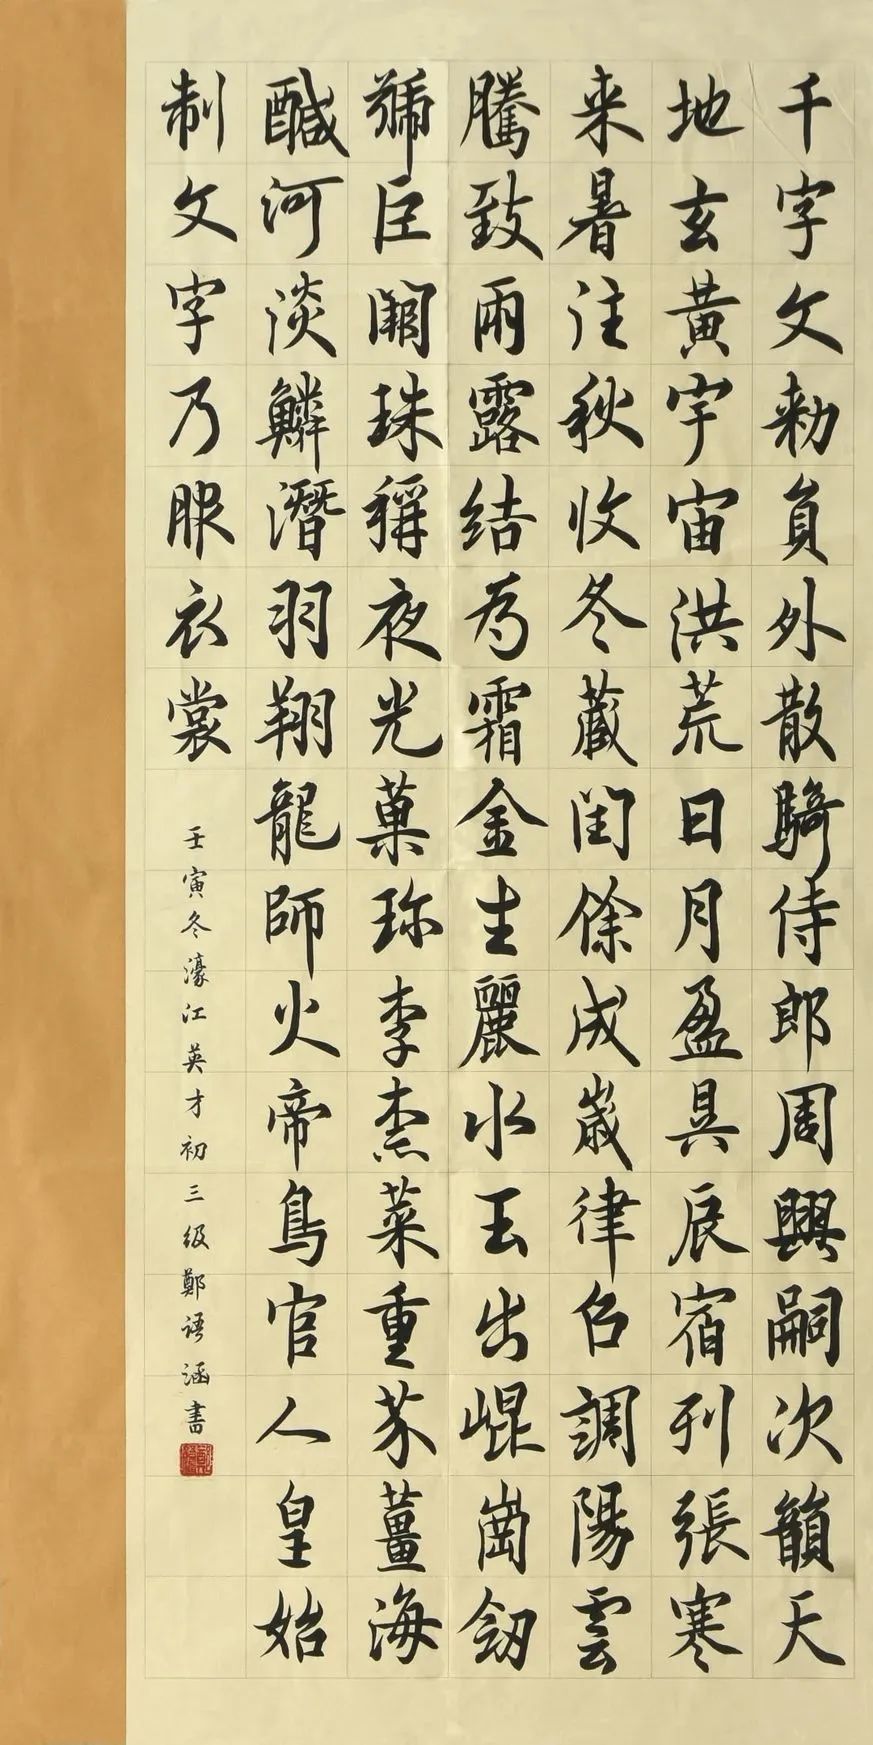 千字文勑員外散騎侍郎周興嗣次韻天
地玄黃宇宙洪荒日月盈昃辰宿列張寒
来暑往秋收冬藏閏餘成歲律召調陽雲
騰致雨露結為霜金生麗水玉出崐崗劒
號巨闕珠稱夜光菓珎李柰菜重芥薑海
醎河淡鱗潛羽翔龍師火帝鳥官人皇始
制文字乃服衣裳
壬寅冬濠江英才初三级鄭语涵書